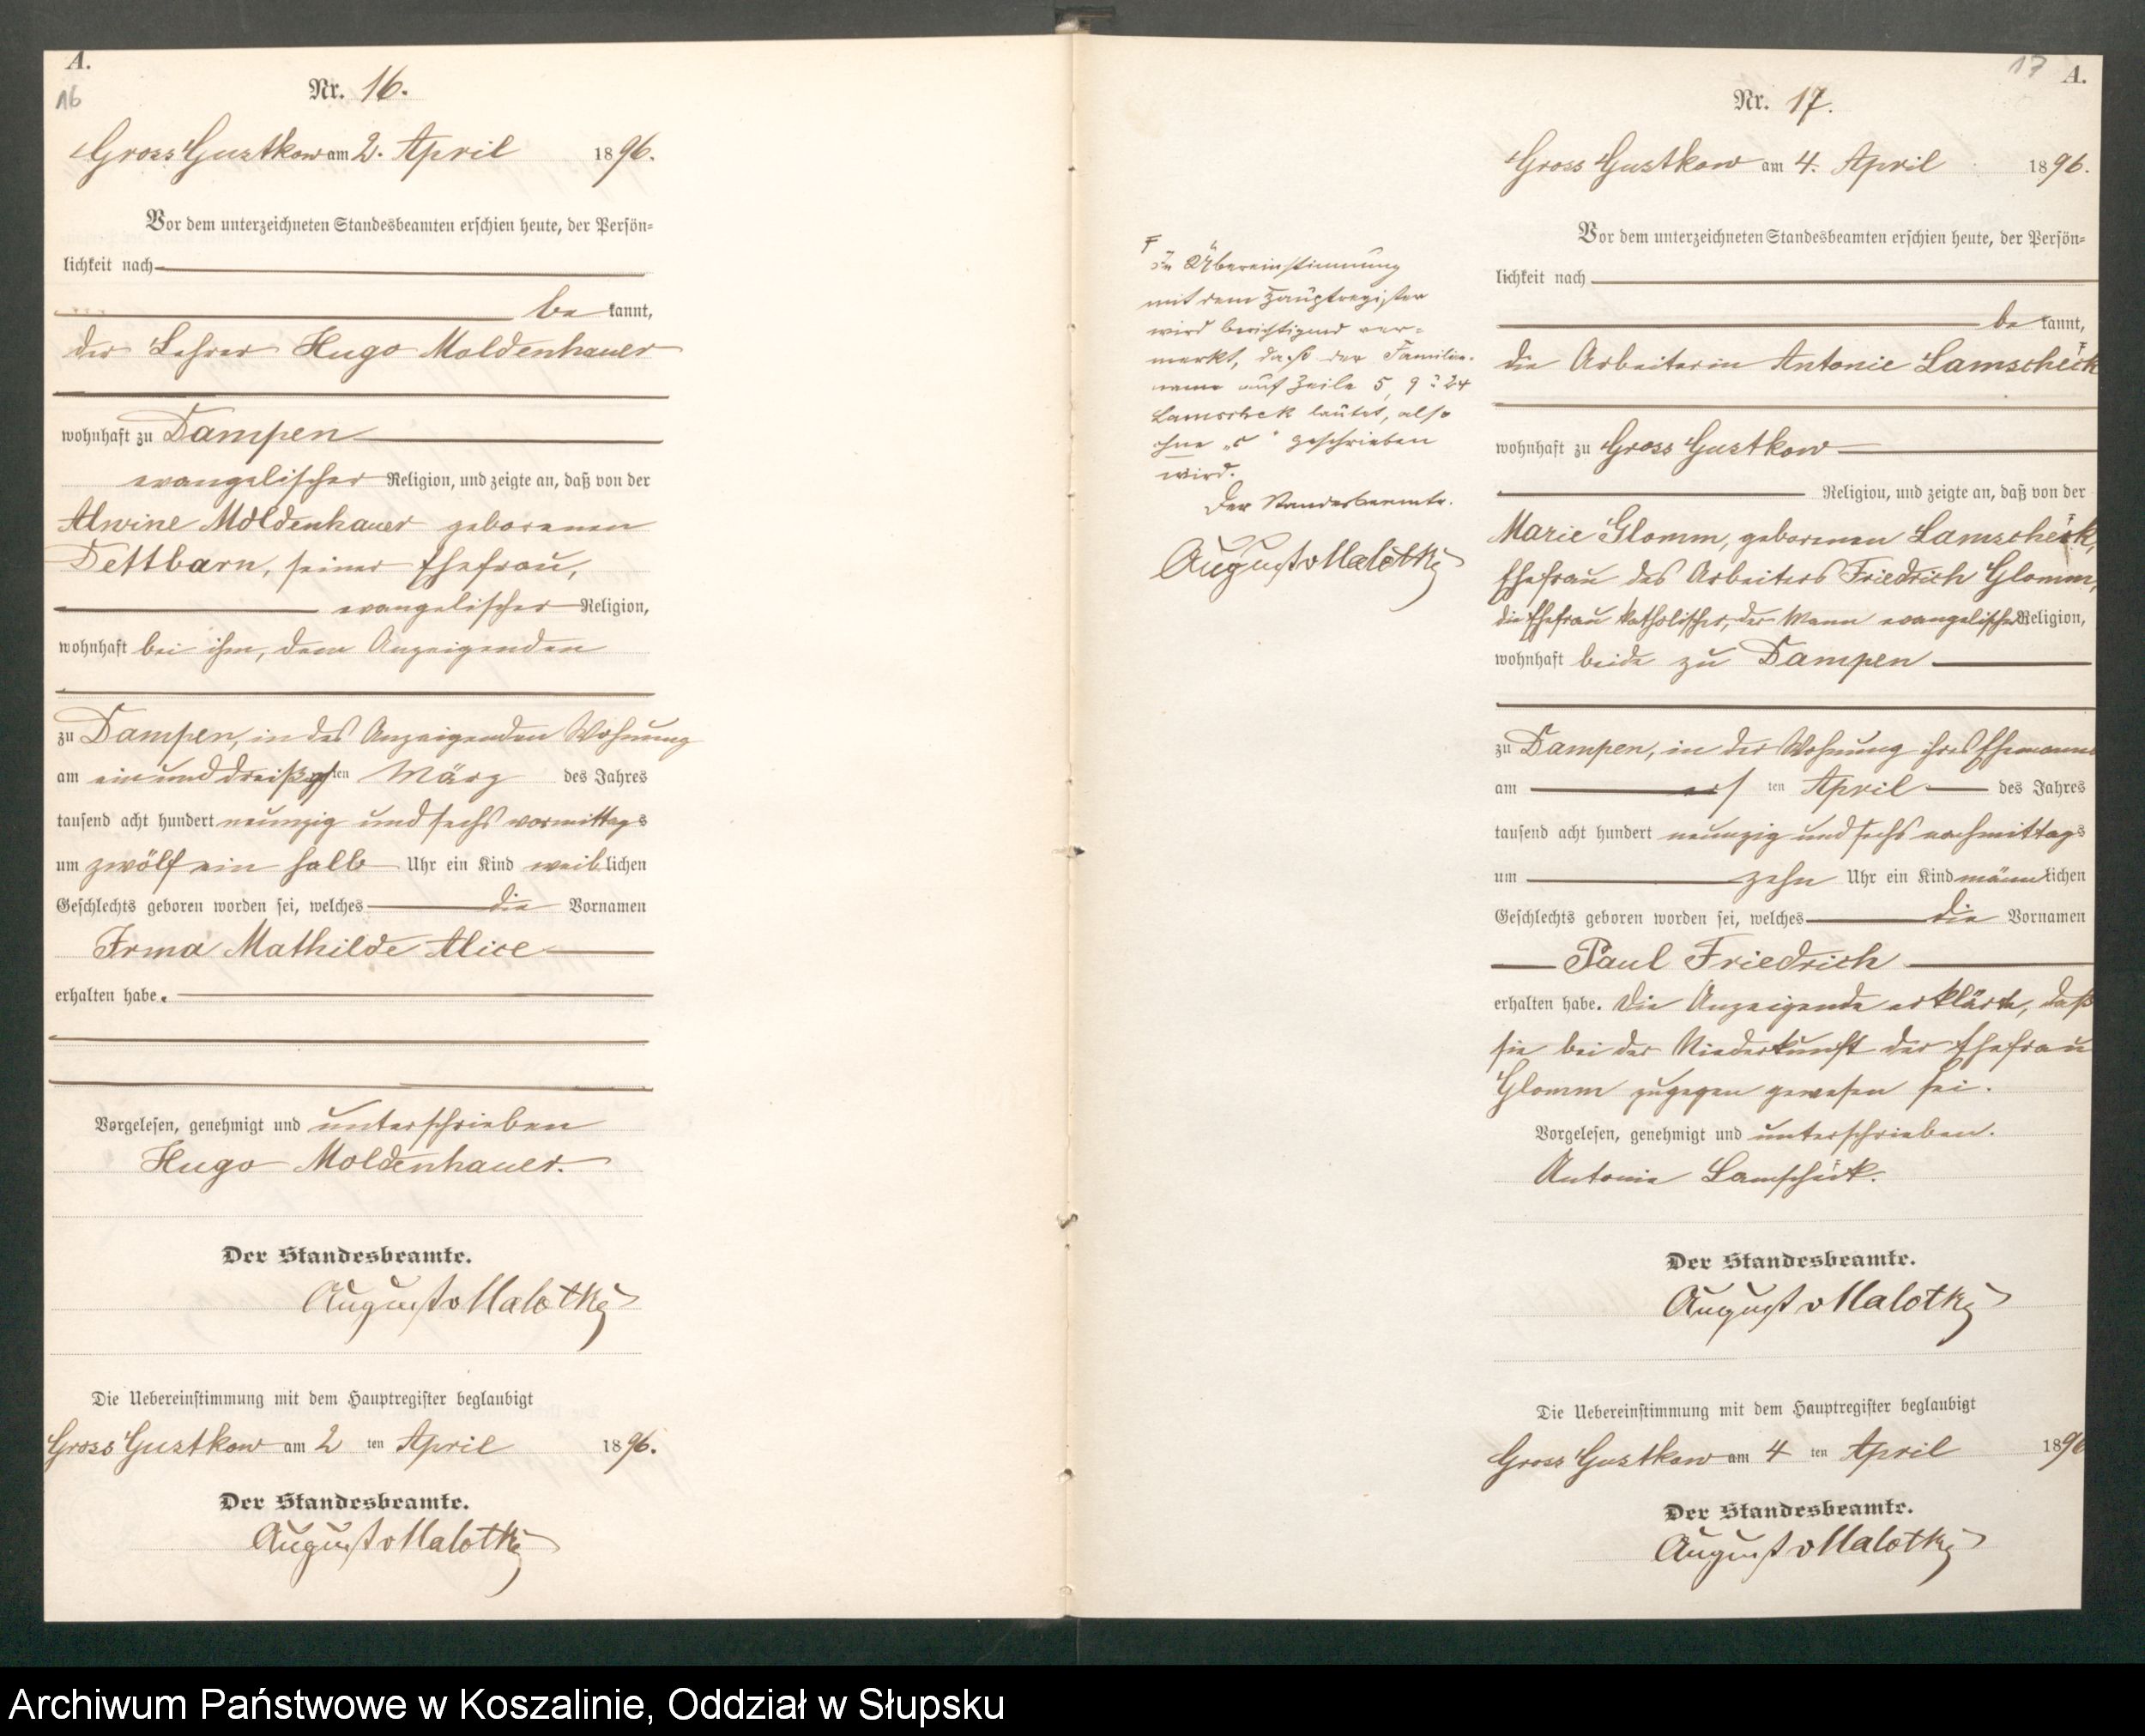 A.
16
Nr. 16.
Gross Gustkow am 2. April 1896.
Vor dem unterzeichneten Standesbeamten erschien heute, der Persön-
lichkeit nach
be kannt,
der Lehrer Hugo Moldenhauer
wohnhaft zu Dampen
evangelischer Religion, und zeigte an, daß von der
Alwine Moldenhauer geborenen
Dettbarn, seiner Ehefrau,
evangelischer Religion,
wohnhaft bei ihm, dem Anzeigenden
zu Dampen, in des Anzeigenden Wohnung
am ein und dreißigsten März des Jahres
tausend acht hundert neunzig und sechs vormittags
um zwölf ein halb Uhr ein Kind weiblichen
Geschlechts geboren worden sei, welches die Vornamen
Irma Mathilde Alice
erhalten habe.
Vorgelesen, genehmigt und unterschrieben
Hugo Moldenhauer.
Der Standesbeamte.
August v Malotky
Die Uebereinstimmung mit dem Hauptregister beglaubigt
Gross Gustkow am 2 ten April 1896.
Der Standesbeamte.
August v Malotky
F
In Übereinstimmung
mit dem Hauptregister
wird berichtigend ver-
merkt, daß der Familien-
name auf Zeile 5, 9 u. 24
Lamschek lautet, also
ohne „c“ geschrieben
wird.
Der Standesbeamte.
August v Malotky
17 A.
Nr. 17.
Gross Gustkow am 4. April 1896.
Vor dem unterzeichneten Standesbeamten erschien heute, der Persön-
lichkeit nach
be kannt,
F
die Arbeiterin Antonie Lamscheck
wohnhaft zu Gross Gustkow
Religion, und zeigte an, daß von der
Marie Glomm, geborenen Lamscheck,
Ehefrau des Arbeiters Friedrich Glomm,
die Ehefrau katholischer, der Mann evangelischer Religion,
wohnhaft beide zu Dampen
zu Dampen, in der Wohnung ihres Ehemannes
am ersten April des Jahres
tausend acht hundert neunzig und sechs nachmittags
um zehn Uhr ein Kind männlichen
Geschlechts geboren worden sei, welches die Vornamen
Paul Friedrich
erhalten habe. Die Anzeigende erklärte, daß
sie bei der Niederkunft der Ehefrau
Glomm zugegen gewesen sei.
Vorgelesen, genehmigt und unterschrieben.
Antonie Lamscheck.
Der Standesbeamte.
August v Malotky
Die Uebereinstimmung mit dem Hauptregister beglaubigt
Gross Gustkow am 4 ten April 1896
Der Standesbeamte.
August v Malotky
Archiwum Państwowe w Koszalinie, Oddział w Słupsku